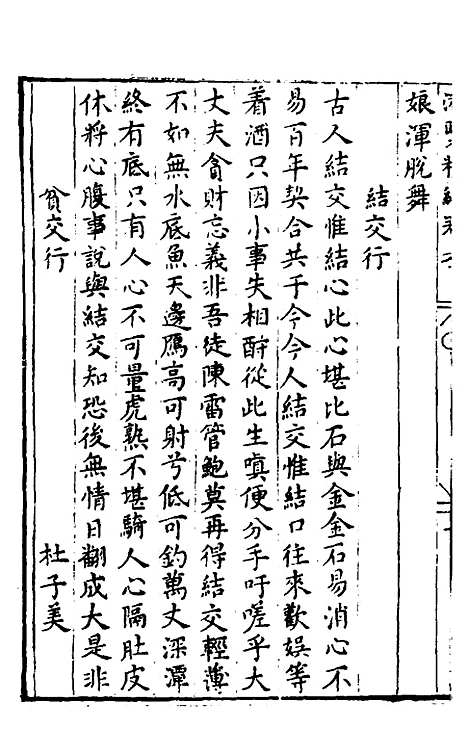 娘渾脫舞
結交行
古人結交惟結心此心堪比石與金金石易消心不
易百年契合共于今今人結交惟結口往來歡娛等
着酒只因小事失相酧從此生嗔便分手吁嗟乎大
丈夫貪財忘義非吾徒陳雷管鮑莫再得結交輕薄
不如無水底魚天邊鴈高可射兮低可釣萬丈深潭
終有底只有人心不可量虎熟不堪騎人心隔肚皮
休將心腹事說與結交知恐後無情日翻成大是非
貧交行 杜子美